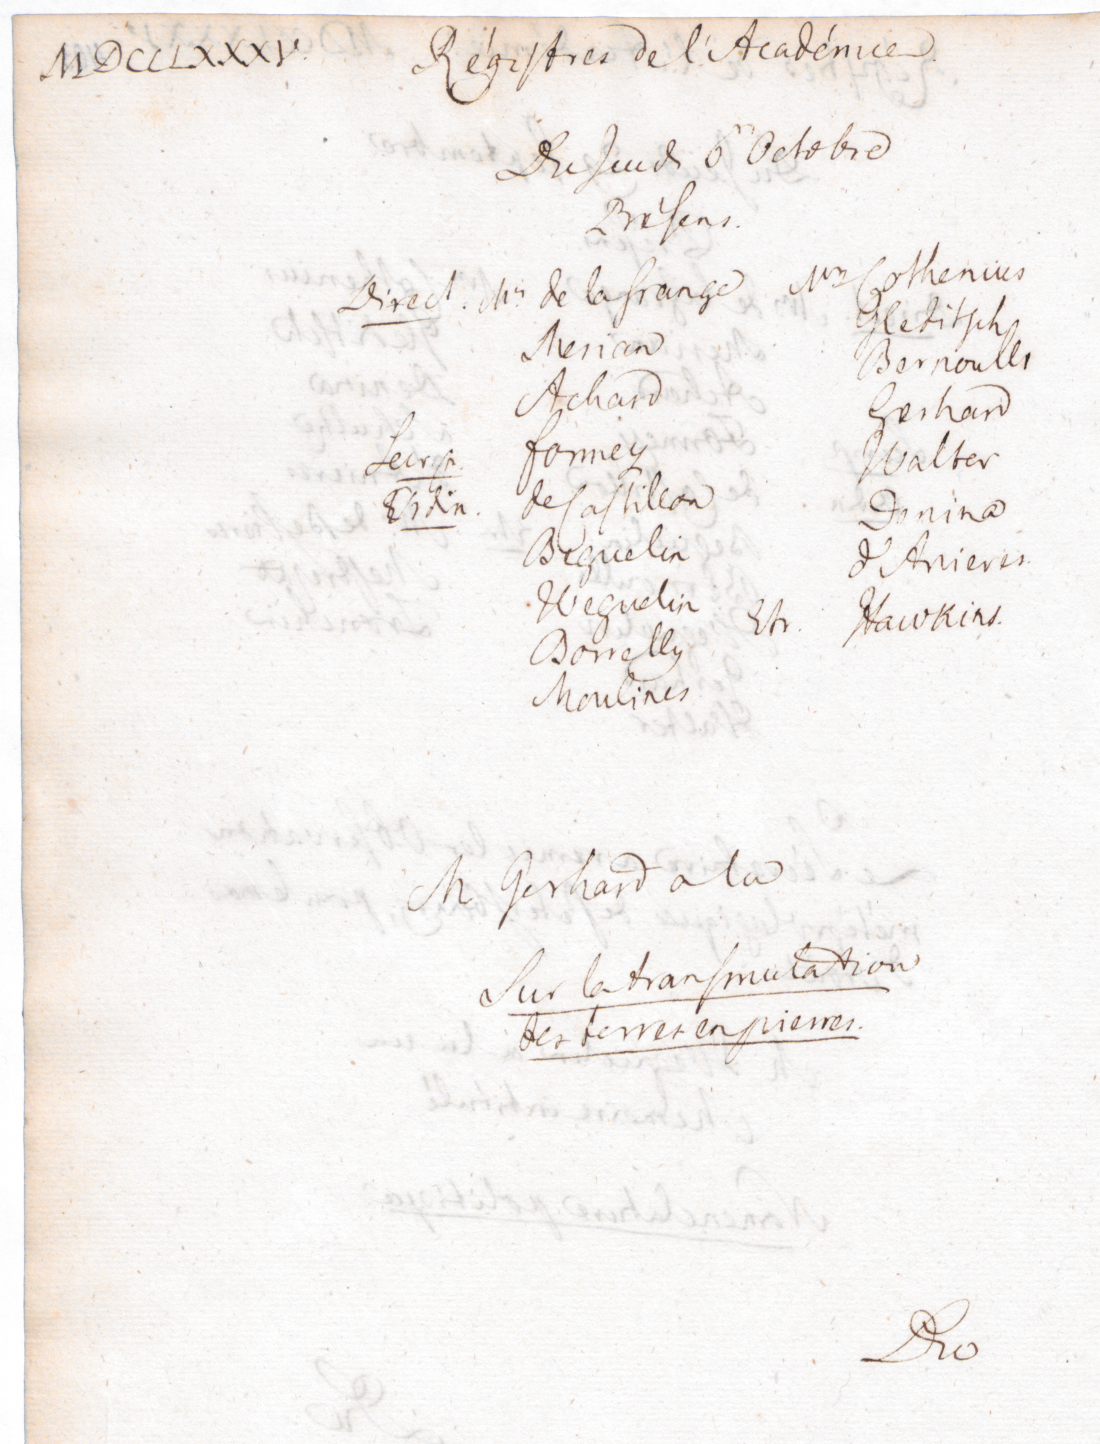 MDCCLXXXV. Régistres de l'Académie.
Du Jeudi 6.m Octobre
Présens.
Direct. Mrs de la Grange
Merian
Achard
Secr. Formey
Ordin. de Castillon
Béguelin
Weguelin
Borrelly
Moulines
Mrs Cothenius
Gleditsch
Bernoulli
Gerhard
Walter
Denina
d'Anieres.
Etr. Hawkins.
M. Gerhard a lu
Sur la transmutation
des terres en pierres.
Du